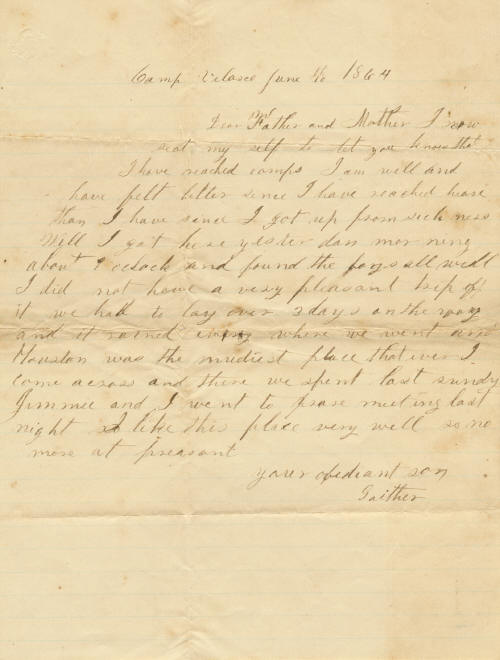 Camp Velasco June 1864
Dear Father and Mother I now
seat my self to let you know that
I have reached camps I am well and
have felt better since I have reached heare
than I have since I got up from sick ness
Well I got here yester day mor ning
about oclock and found the boys all well
I did not have a very pleasant trip of
it we had to lay over 3 days on the way
and it rained every where we went and
Houston was the mudiest place that ever I
come across and there we spent last sundy
Jimmee and I went to prase meeting last
night I like this place very well so no
more at preasant
yourer obediant son
Gaither